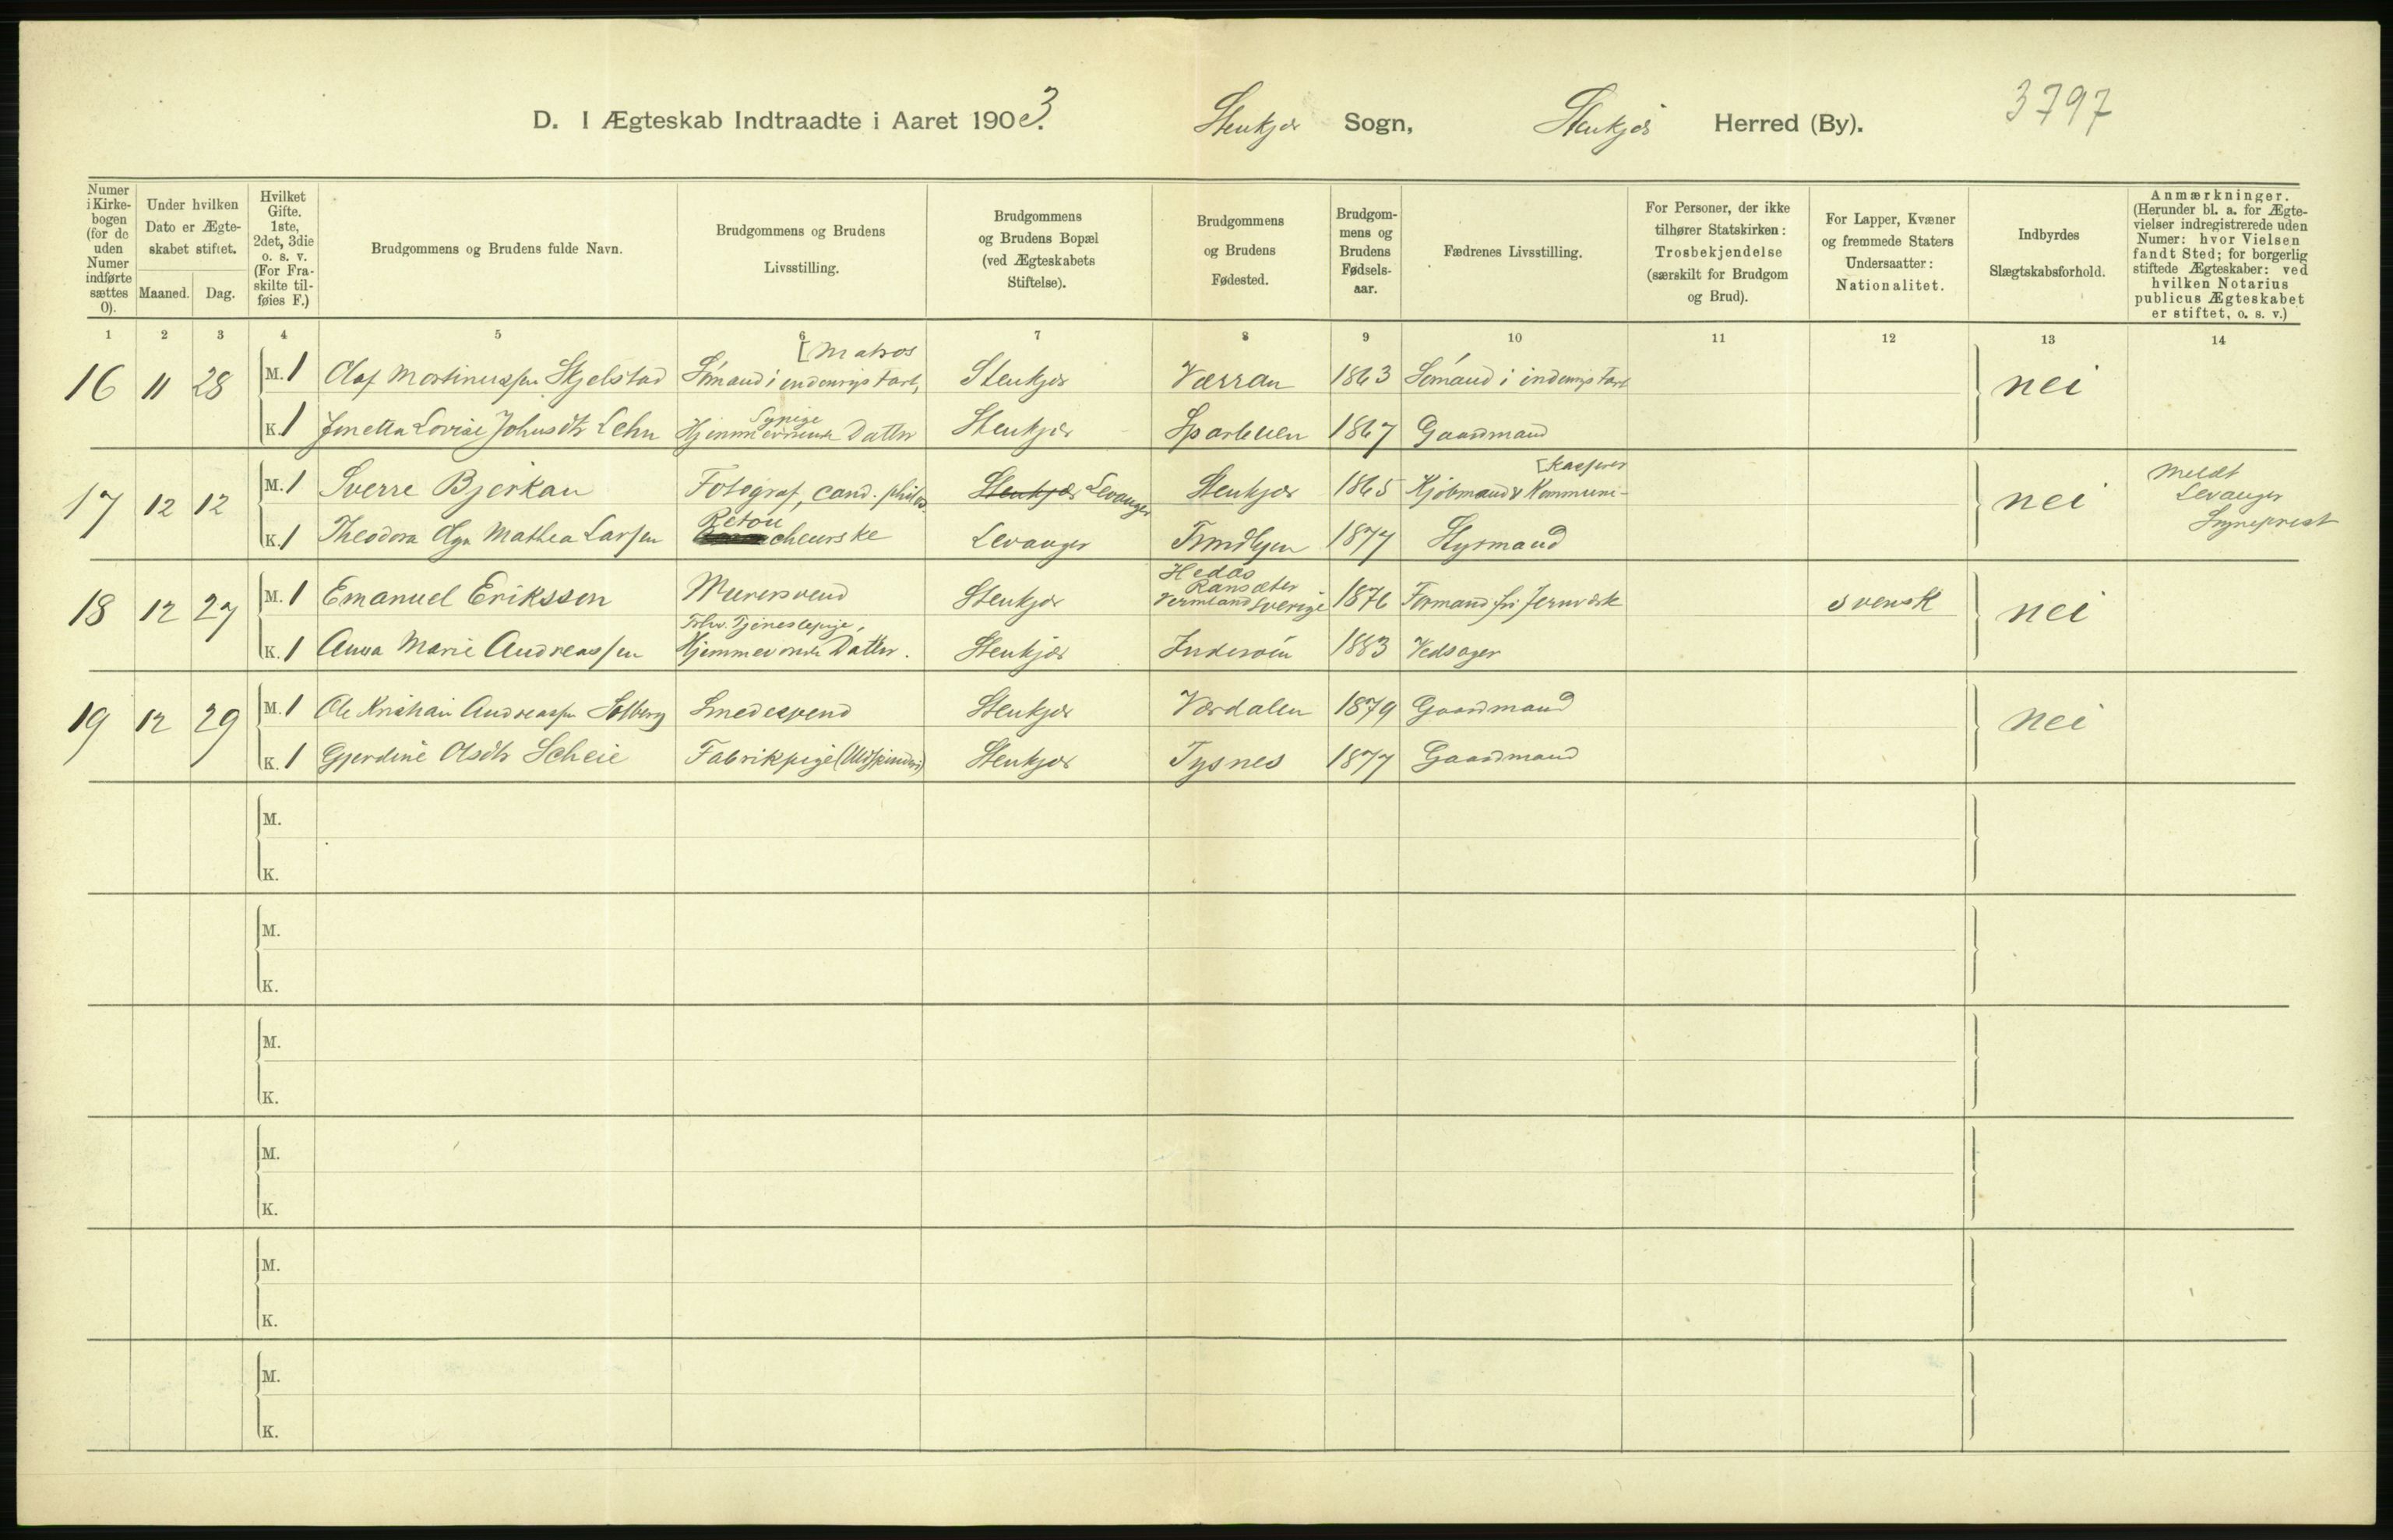 D. I Ægteskab Indtraadte i Aaret 1903. Stenkjær Sogn, Stenkjær Herred (By). 3797
Numer i Kirkebogen (for de uden Numer indførte sættes 0).
Under hvilken Dato er Ægteskabet stiftet.
Maaned. Dag.
Hvilket Gifte. 1ste, 2det, 3die o. s. v. (For Fraskilte tilføies F.)
Brudgommens og Brudens fulde Navn.
Brudgommens og Brudens Livsstilling.
Brudgommens og Brudens Bopæl (ved Ægteskabets Stiftelse).
Brudgommens og Brudens Fødested.
Brudgommens og Brudens Fødselsaar.
Fædrenes Livsstilling.
For Personer, der ikke tilhører Statskirken: Trosbekjendelse (særskilt for Brudgom og Brud).
For Lapper, Kvæner og fremmede Staters Undersaatter: Nationalitet.
Indbyrdes Slægtskabsforhold.
Anmærkninger. (Herunder bl. a. for Ægtevielser indregistrerede uden Numer: hvor Vielsen fandt Sted; for borgerlig stiftede Ægteskaber: ved hvilken Notarius publicus Ægteskabet er stiftet, o. s. v.)
1 2 3 4 5 6 7 8 9 10 11 12 13 14
[Matros
16 11 28 M. 1 Olaf Martinussen Skjelstad Sömand i indenrigs Fart, Stenkjær Værran 1863 Sömand i indenrigs Fart nei
Sypige
K. 1 Jonetta Lovise Johnsdtr Lehn Hjemmeværende Datter Stenkjær Sparbuen 1867 Gaardmand
[kasserer
17 12 12 M. 1 Sverre Bjerkan Fotograf, cand. philos. Stenkjær Levanger Stenkjær 1865 Kjöbmand & Kommune- nei Meldt Levanger Sogneprest
Retou
K. 1 Theodora Olga Mathea Larsen cheurske Levanger Trondhjem 1877 Styrmand
Hedås
Ransæter
18 12 27 M. 1 Emanuel Eriksson Murersvend Stenkjær Vermland Sverige 1876 Formand fri Jernværk svensk nei
Tjenestepige,
K. 1 Anna Marie Andreassen Hjemmeværende Datter. Stenkjær Inderöen 1883 Vedsager
19 12 29 M. 1 Ole Kristian Andreassen Solberg Smedesvend Stenkjær Værdalen 1879 Gaardmand nei
K. 1 Gjerdine Olsdtr Scheie Fabrikpige (Uldspinderi) Stenkjær Tysnes 1877 Gaardmand
M.
K.
M.
K.
M.
K.
M.
K.
M.
K.
M.
K.